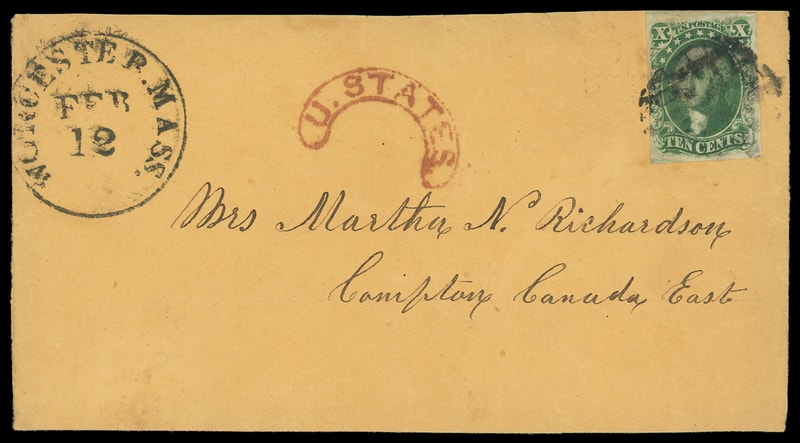 WORCESTER. MASS.
FEB
12
U. STATES
X U.S. POSTAGE X
TEN CENTS
Mrs Martha N. Richardson
Compton Canada East